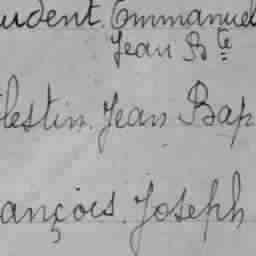 udent. Emmanuel
Jean Bte
lestin. Jean Bap
ançois. Joseph